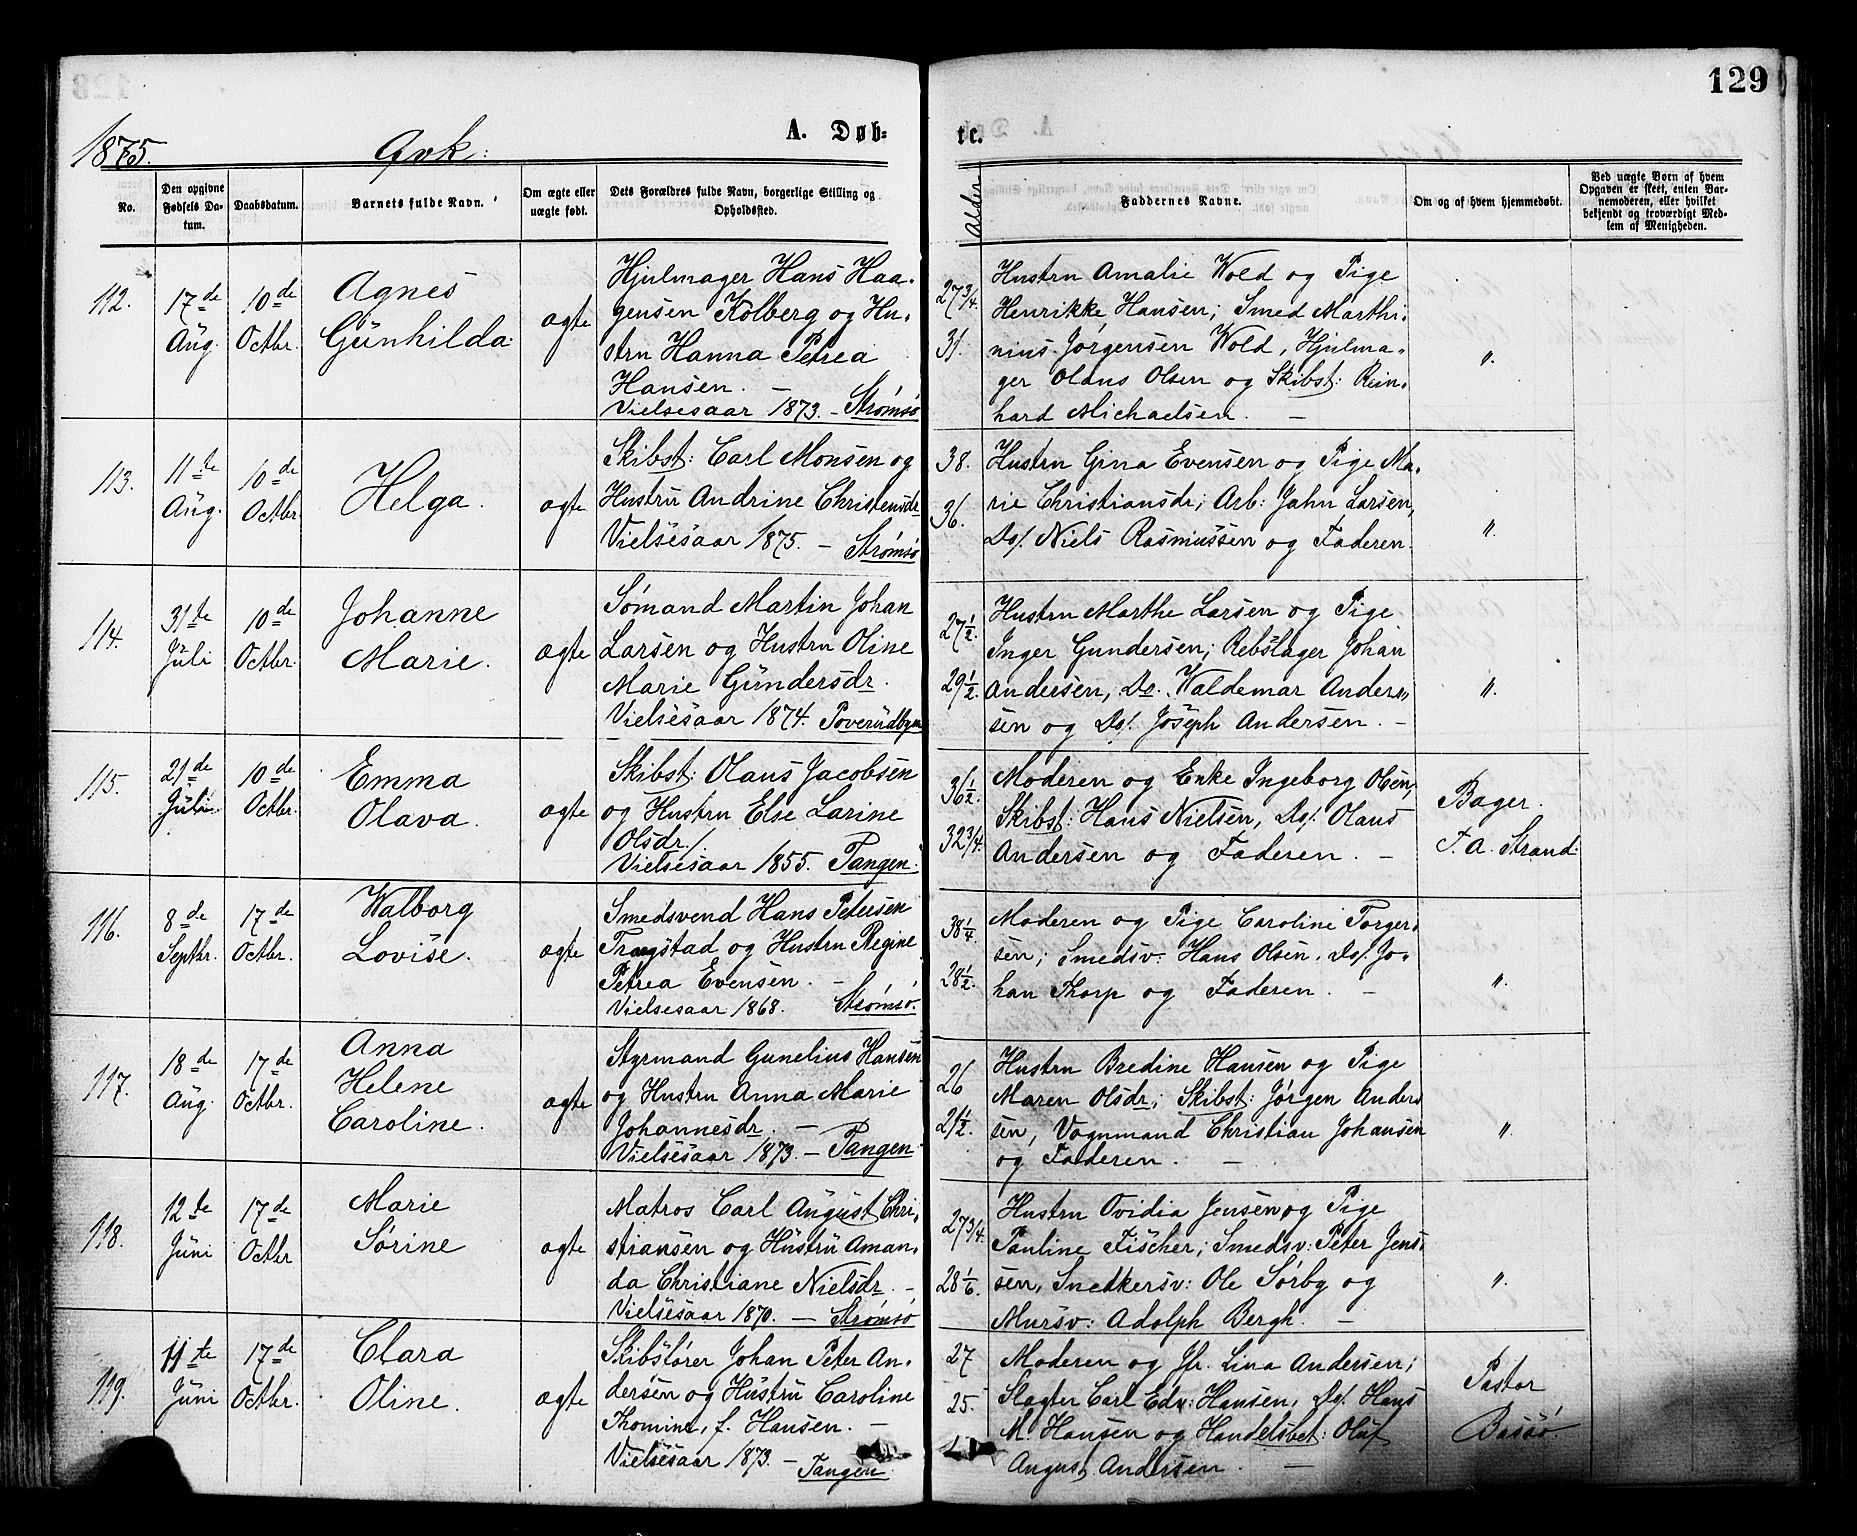 129
1875.
Qvk:
A. Døb-
te.
No.
Den opgivne
Fødsels Da-
tum.
Daabsdatum.
Barnets fulde Navn.
Om ægte eller
uægte født.
Dets Forældres fulde Navn, borgerlige Stilling og
Opholdssted.
Alder
Faddernes Navne.
Om og af hvem hjemmedøbt.
Ved uægte Børn af hvem
Opgaven er skeet, enten Bar-
nemoderen, eller hvilket
bekjendt og troværdigt Med-
lem af Menigheden.
112.
17de
Aug.
10de
Octbr.
Agnes
Gunhilda.
ægte
Hjulmager Hans Haa-
gensen Kolberg og Hu-
stru Hanna Petrea
Hansen. —
Vielsesaar 1873. - Strømsø
27 3/4.
31.
Hustru Amalie Wold og Pige
Henrikke Hansen; Smed Marthi-
nius Jørgensen Wold, Hjulma-
ger Olaus Olsen og Skibst: Rein-
hard Michaelsen. —
".
113.
11te
Aug.
10de
Octbr.
Helga.
ægte
Skibst: Carl Monsen og
Hustru Andrine Christensdr
Vielsesaar 1875. - Strømsø
38.
36.
Hustru Gina Evensen og Pige Ma-
rie Christiansdr; Arb: Jahn Larsen,
Do/. Niels Rasmussen og Faderen.
".
114.
31te
Juli
10de
Octbr.
Johanne
Marie.
ægte
Sømand Martin Johan
Larsen og Hustru Oline
Marie Gundersdr.
Vielsesaar 1874. Poverudbyen
27 1/2.
29 1/2.
Hustru Marthe Larsen og Pige
Inger Gundersen; Rebslager Johan
Andersen, Do. Waldemar Ander-
sen og Do/. Joseph Andersen. -
".
115.
21de
Juli.
10de
Octbr.
Emma
Olava.
ægte
Skibst: Olaus Jacobsen
og Hustru Else Larine
Olsdr./.
Vielsesaar 1855. Tangen.
36 1/2.
32 3/4.
Moderen og Enke Ingeborg Olsen,
Skibst: Hans Nielsen, Do/. Olaus
Andersen og Faderen. -
Bager.
F. A. Strand.
116.
8de
Septbr.
17de
Octbr.
Walborg
Lovise.
ægte
Smedsvend Hans Petersen
Trøgstad og Hustru Regine
Petrea Evensen. -
Vielsesaar 1868. Strømsø.
38 1/4
28 1/2.
Moderen og Pige Caroline Torger-
sen; Smedsv: Hans Olsen, Do/. Jo-
han Thorp og Faderen. -
".
117.
18de
Aug.
17de
Octbr.
Anna
Helene
Caroline.
ægte
Styrmand Gunelius Hansen
og Hustru Anna Marie
Johannesdr. -
Vielsesaar 1873. - Tangen
26
21 1/2.
Hustru Bredine Hansen og Pige
Maren Olsdr; Skibst: Jørgen Ander-
sen, Vognmand Christian Johansen
og Faderen. -
".
118.
12te
Juni
17de
Octbr
Marie
Sørine
ægte
Matros Carl August Chri-
stiansen og Hustru Aman-
da Christiane Nielsdr. -
Vielsesaar 1870. - Strømsø
27 3/4.
28 1/6.
Hustru Ovidia Jensen og Pige
Pauline Fischer; Smedsv: Peter Jens-
sen, Snedkersv: Ole Sørby og
Mursv: Adolph Bergh. -
".
119.
11te
Juni
17de
Octbr.
Clara
Oline.
ægte
Skibsfører Johan Peter An-
dersen og Hustru Caroline
Thomine, f. Hansen. -
Vielsesaar 1873. - Tangen.
27
25.
Moderen og Jfr. Lina Andersen;
Slagter Carl Edv: Hansen, Do/. Hans
M. Hansen og Handelsbet: Oluf
August Andersen. -
Pastor
Bassø.